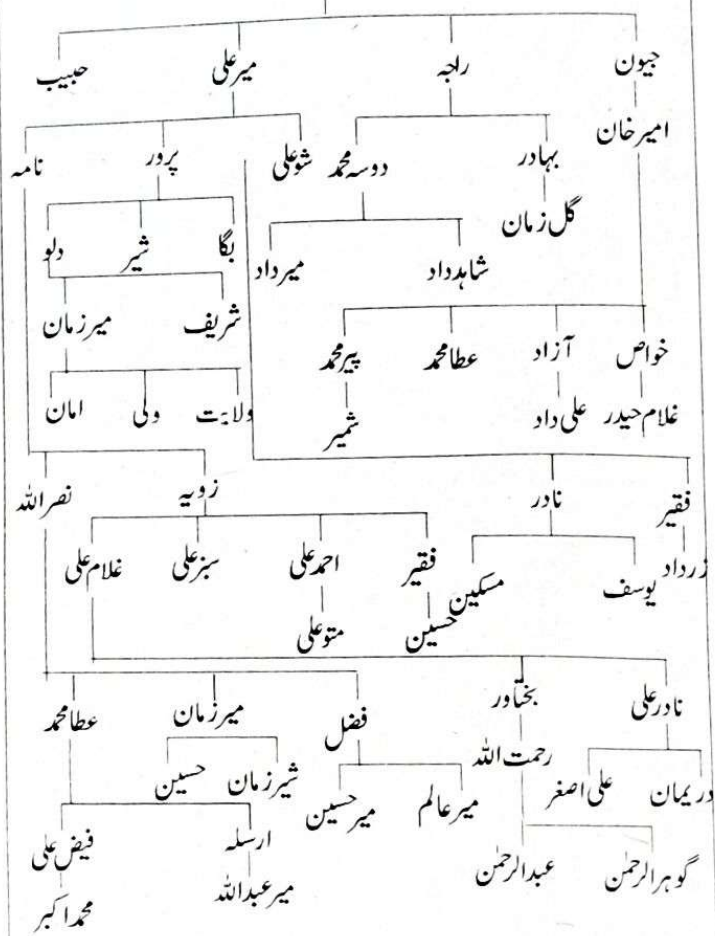 جیون راجہ میر علی حبیب
امیر خان
بہادر دوسہ محمد شو علی پرور نامہ
گل زمان
بگا شیر دلو
شاہد داد میر داد
شریف میر زمان
خواص آزاد عطا محمد پیر محمد
ولایت ولی امان
غلام حیدر علی داد شمیر
فقیر نادر زوبیہ نصر اللہ
زرداد یوسف مسکین فقیر احمد علی سبز علی غلام علی
حسین متو علی
نادر علی بختاور فضل میر زمان عطا محمد
رحمت اللہ
دریمان علی اصغر میر عالم میر حسین شیر زمان حسین
ارسلہ فیض علی
گوہر الرحمٰن عبد الرحمٰن میر عبد اللہ محمد اکبر